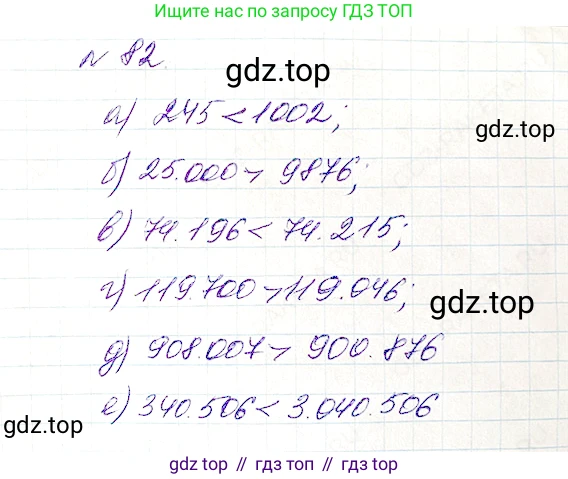 Ищите нас по запросу ГДЗ ТОП
№ 82.
gdz.top
а) 245 < 1002;
gdz.top
б) 25.000 > 9876;
в) 74.196 < 74.215;
г) 119.700 > 119.046;
gdz.top
д) 908.007 > 900.876
е) 340.506 < 3.040.506
gdz.top
gdz.top // гдз топ // гдз.top